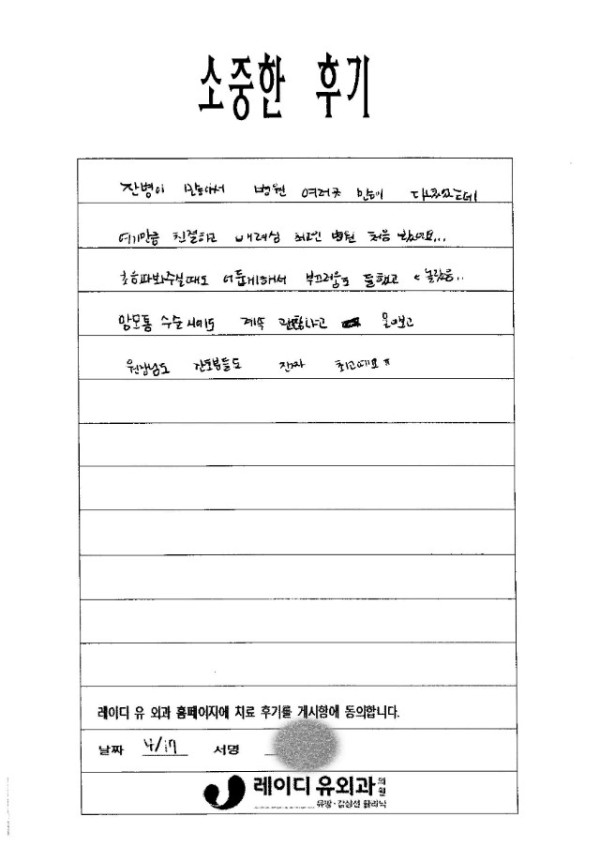 소중한 후기
잔병이 많아서 병원 여러곳 많이 다녀봤는데
여기만큼 친절하고 배려심 최고인 병원 처음 봤어요...
초음파봐주실때도 어둡게해서 부끄러움도 덜했고 &lt;놀랐음..
맘모톰 수술시에도 계속 괜찮냐고 물어봐주고
원장님도 간호사분들도 진짜 최고예요 ㅠ
레이디 유 외과 홈페이지에 치료 후기를 게시함에 동의합니다.
날짜 4/17 서명
레이디 유외과의원
유방·갑상선 클리닉